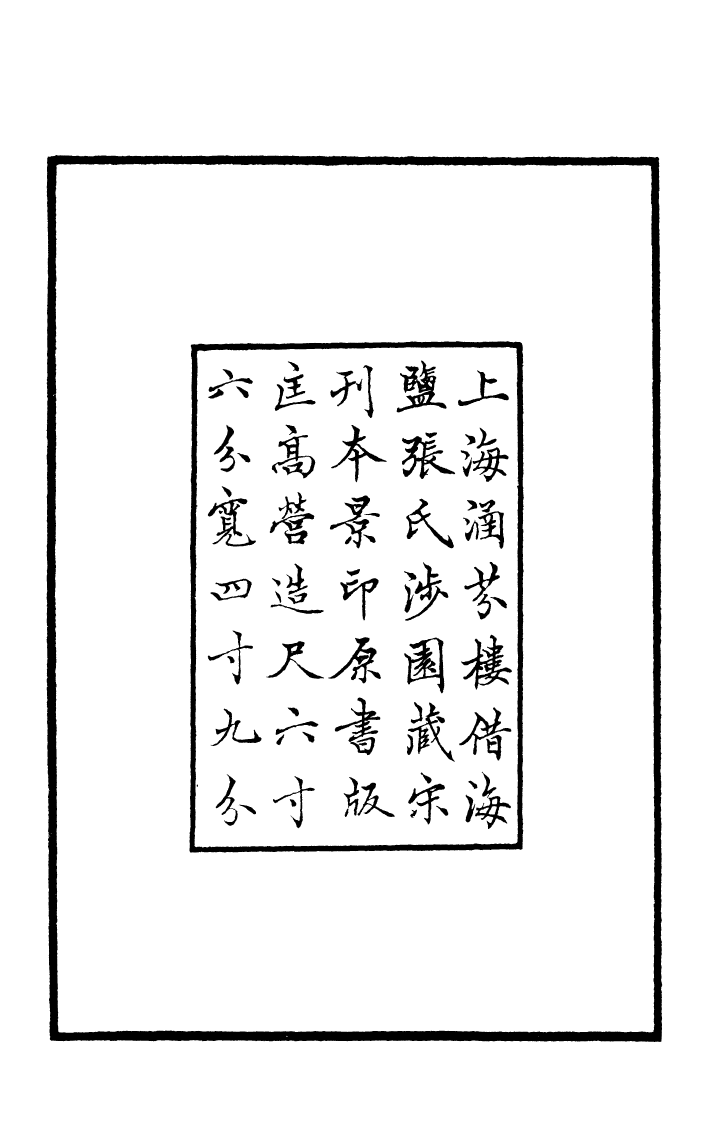 上海涵芬樓借海
鹽張氏涉園藏宋
刊本景印原書版
匡高營造尺六寸
六分寬四寸九分